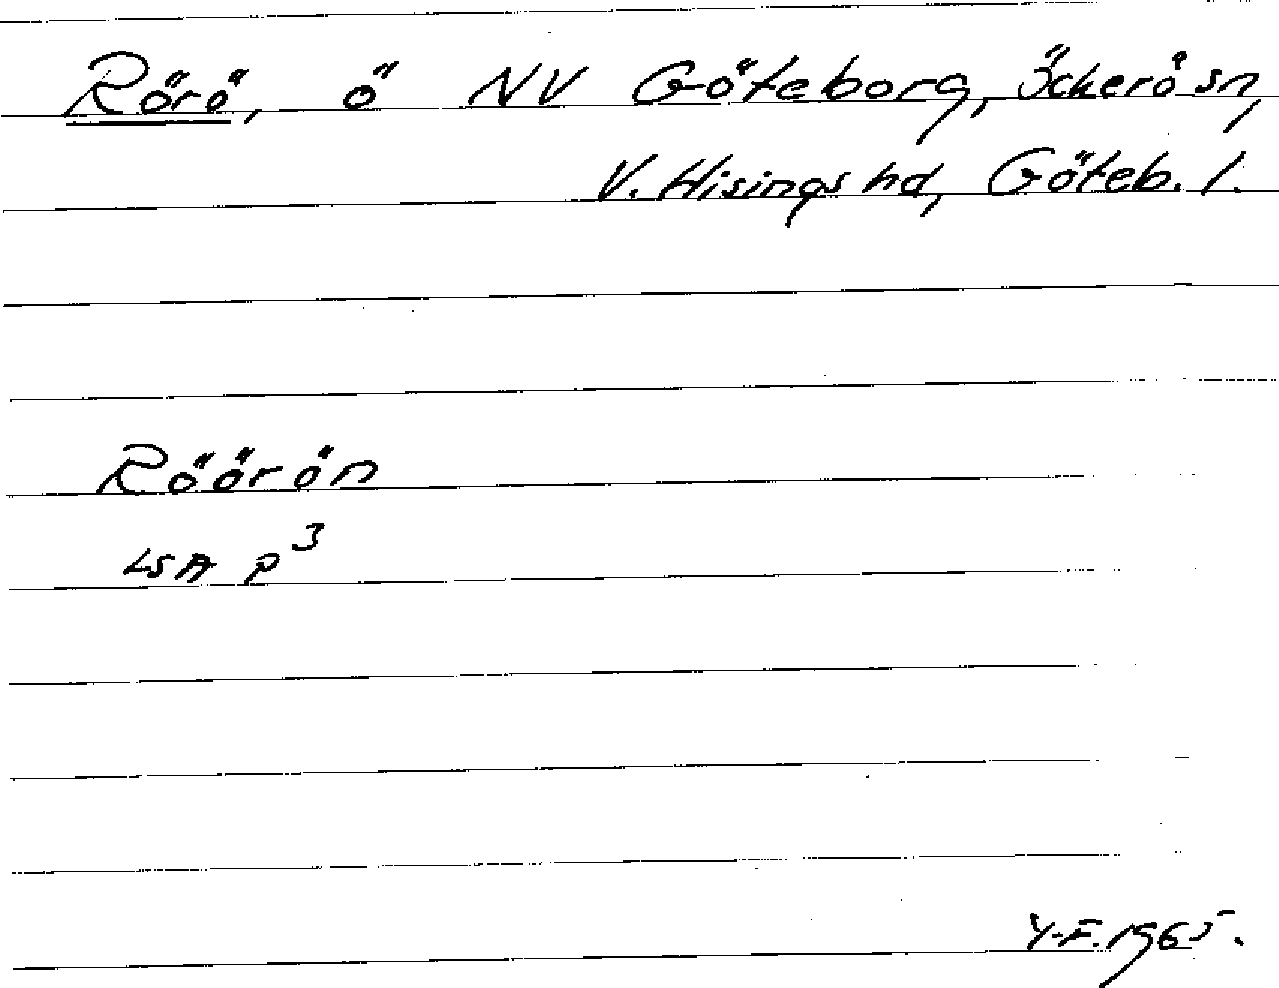 Rörö, ö NV Göteborg, Öckerö sn,
V. Hisings hd, Göteb. l.
Röörön
LSA P³
Y-F. 1965.